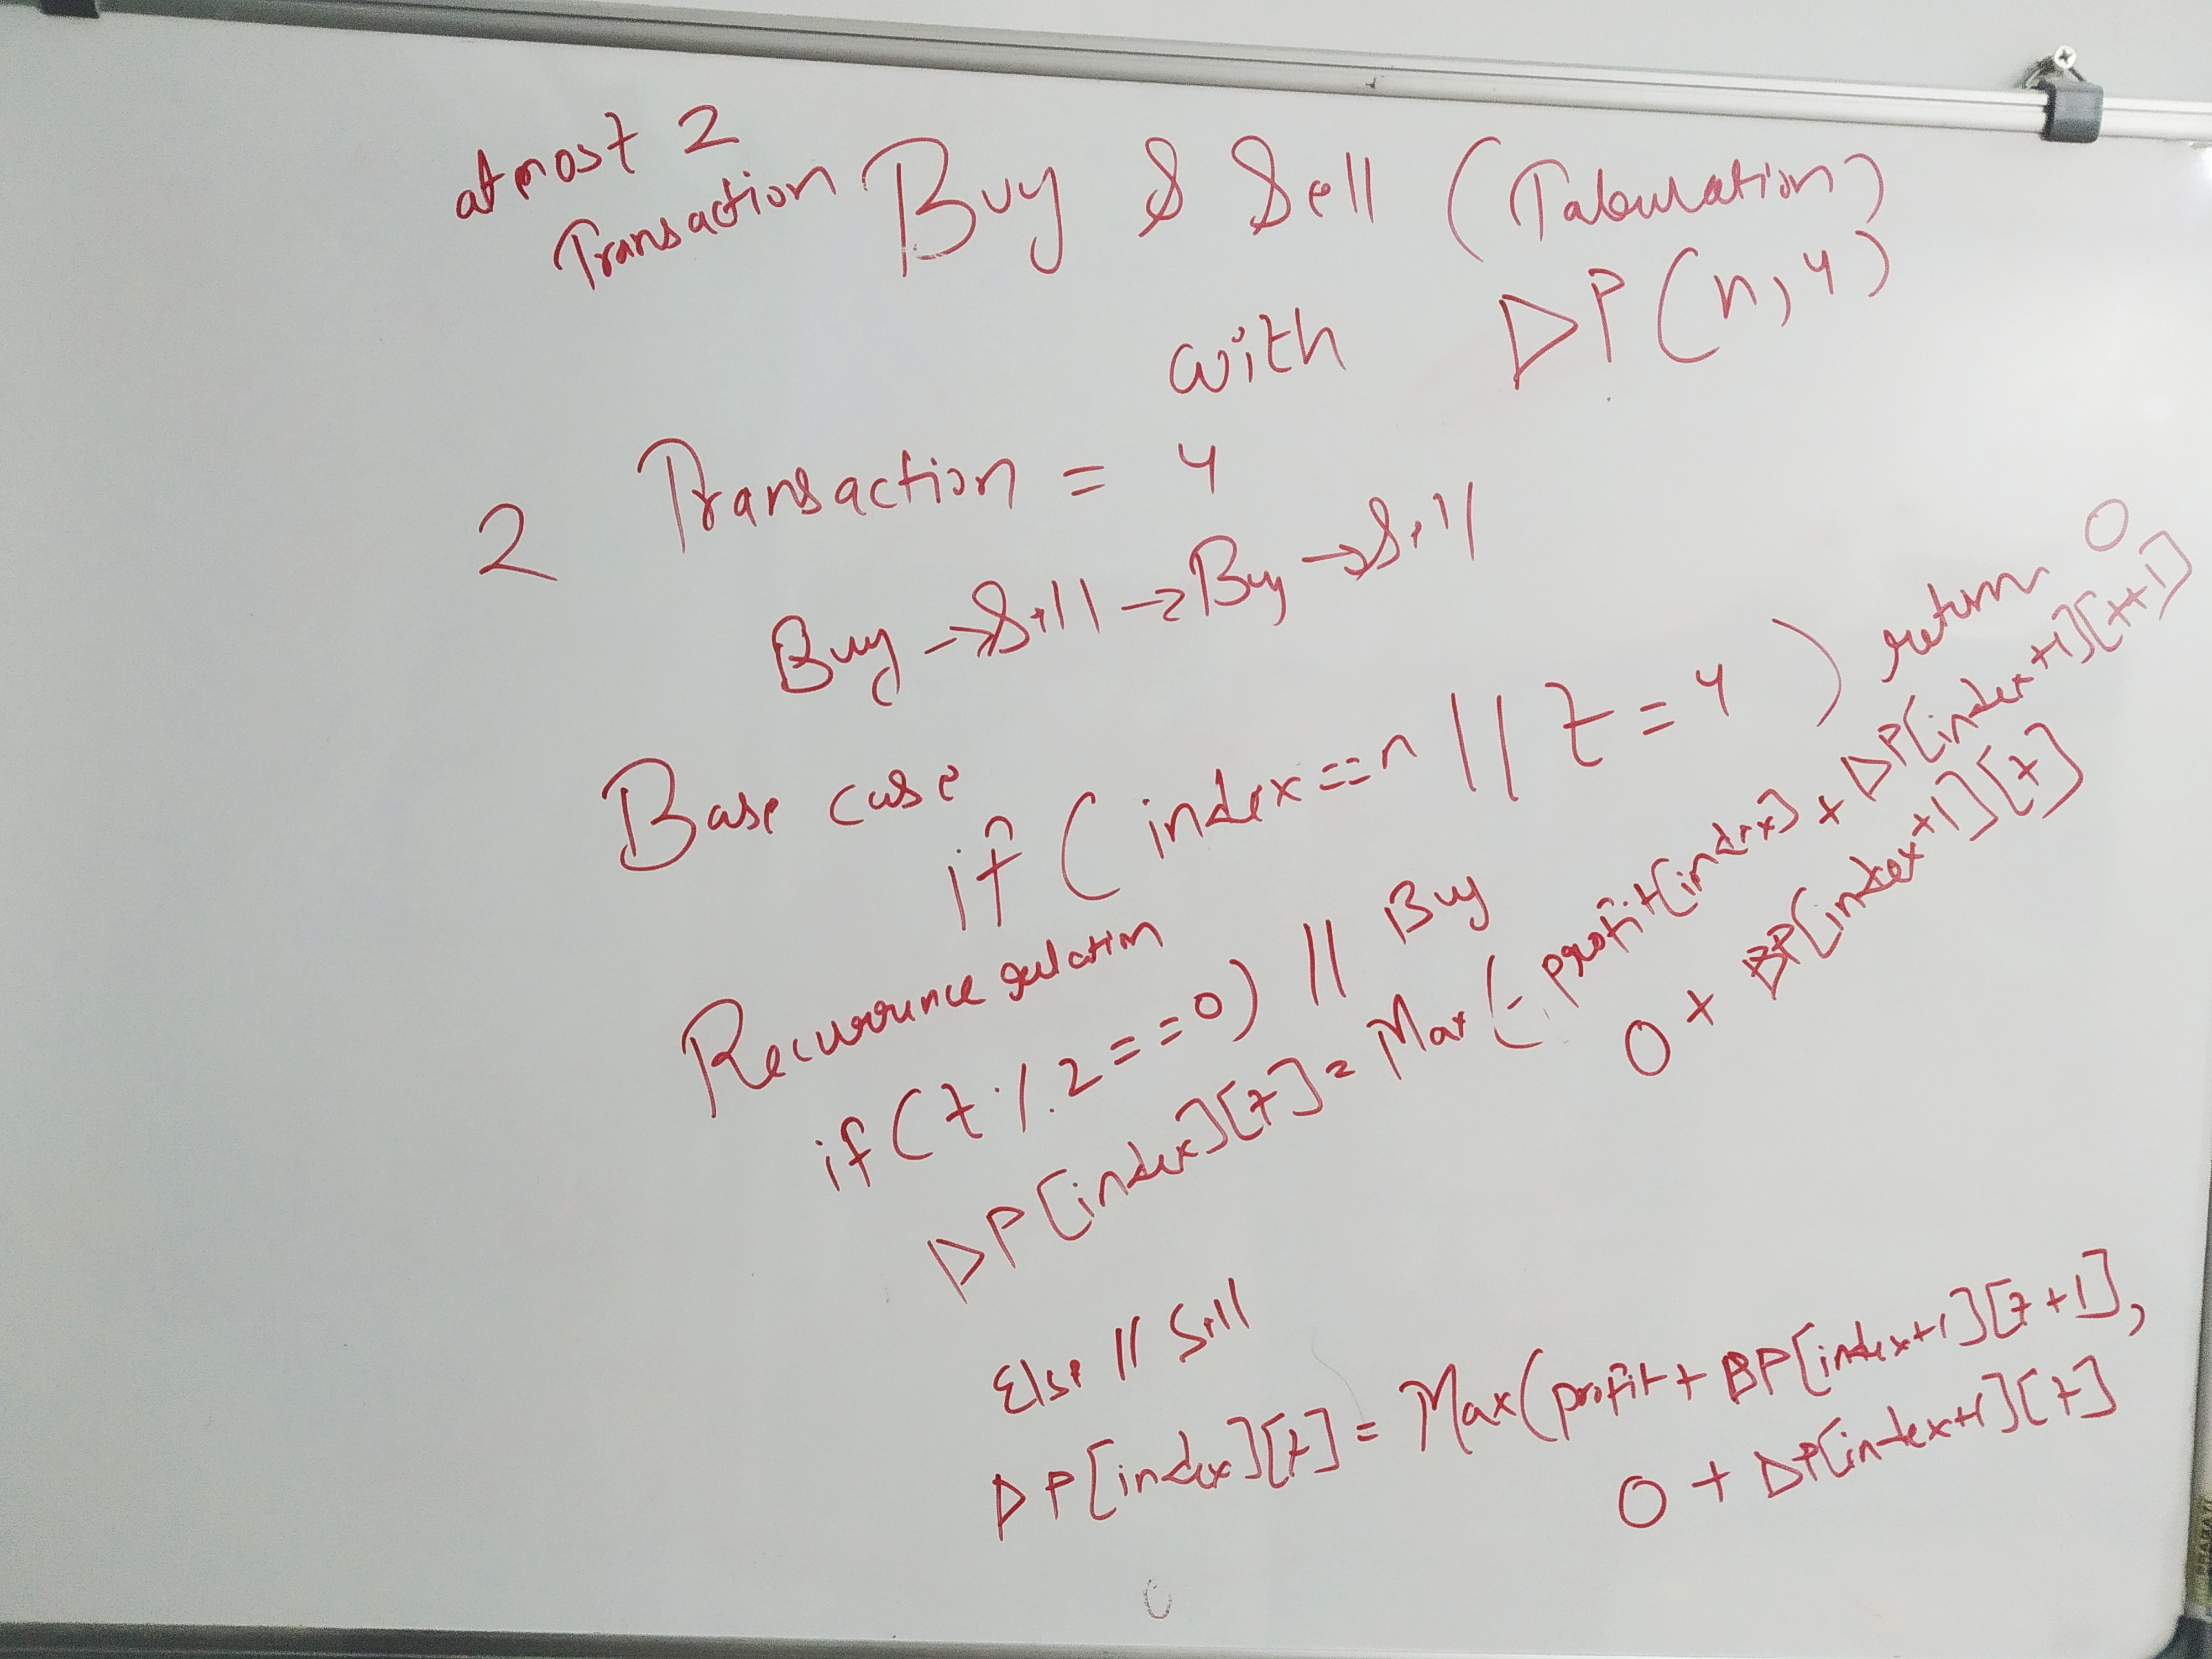 atmost 2
Transaction Buy & Sell (Tabulation)
with DP(n,4)
2 Transaction = 4
Buy → Sell → Buy → Sell
Base case
if (index==n || t=4) return 0
Recurrence relation
if(t%2==0) // Buy
DP[index][t]= Max(-profit[index] + DP[index+1][t+1]
0 + DP[index+1][t]
Else // Sell
DP[index][t]= Max(profit+ DP[index+1][t+1],
0 + DP[index+1][t]